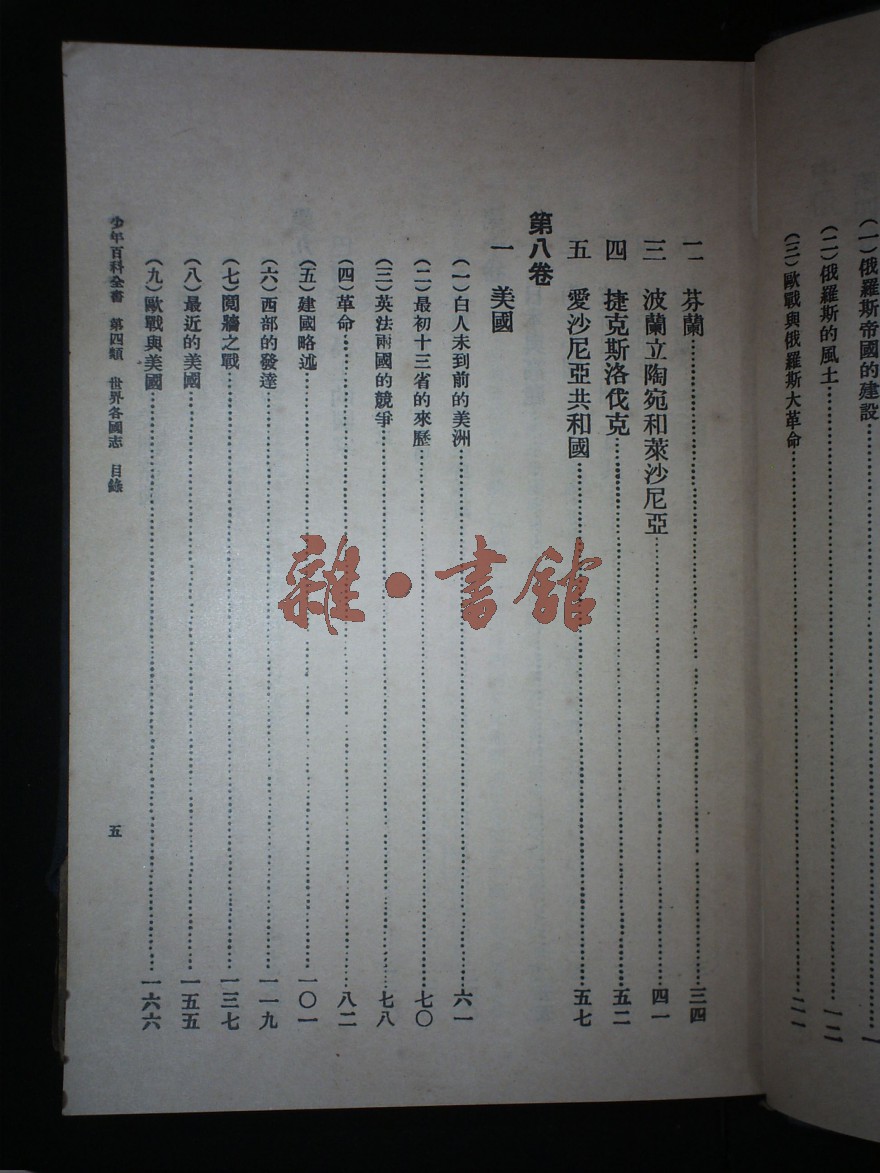 (一)俄羅斯帝國的建設……一
(二)俄羅斯的風土……一二
(三)歐戰與俄羅斯大革命……二一
二 芬蘭……三四
三 波蘭立陶宛和萊沙尼亞……四一
四 捷克斯洛伐克……五二
五 愛沙尼亞共和國……五七
第八卷
一 美國
(一)白人未到前的美洲……六一
(二)最初十三省的來歷……七〇
(三)英法兩國的競爭……七八
(四)革命……八二
(五)建國略述……一〇一
(六)西部的發達……一一九
(七)鬩牆之戰……一三七
(八)最近的美國……一五五
(九)歐戰與美國……一六六
少年百科全書 第四類 世界各國志 目錄 五
雜·書館